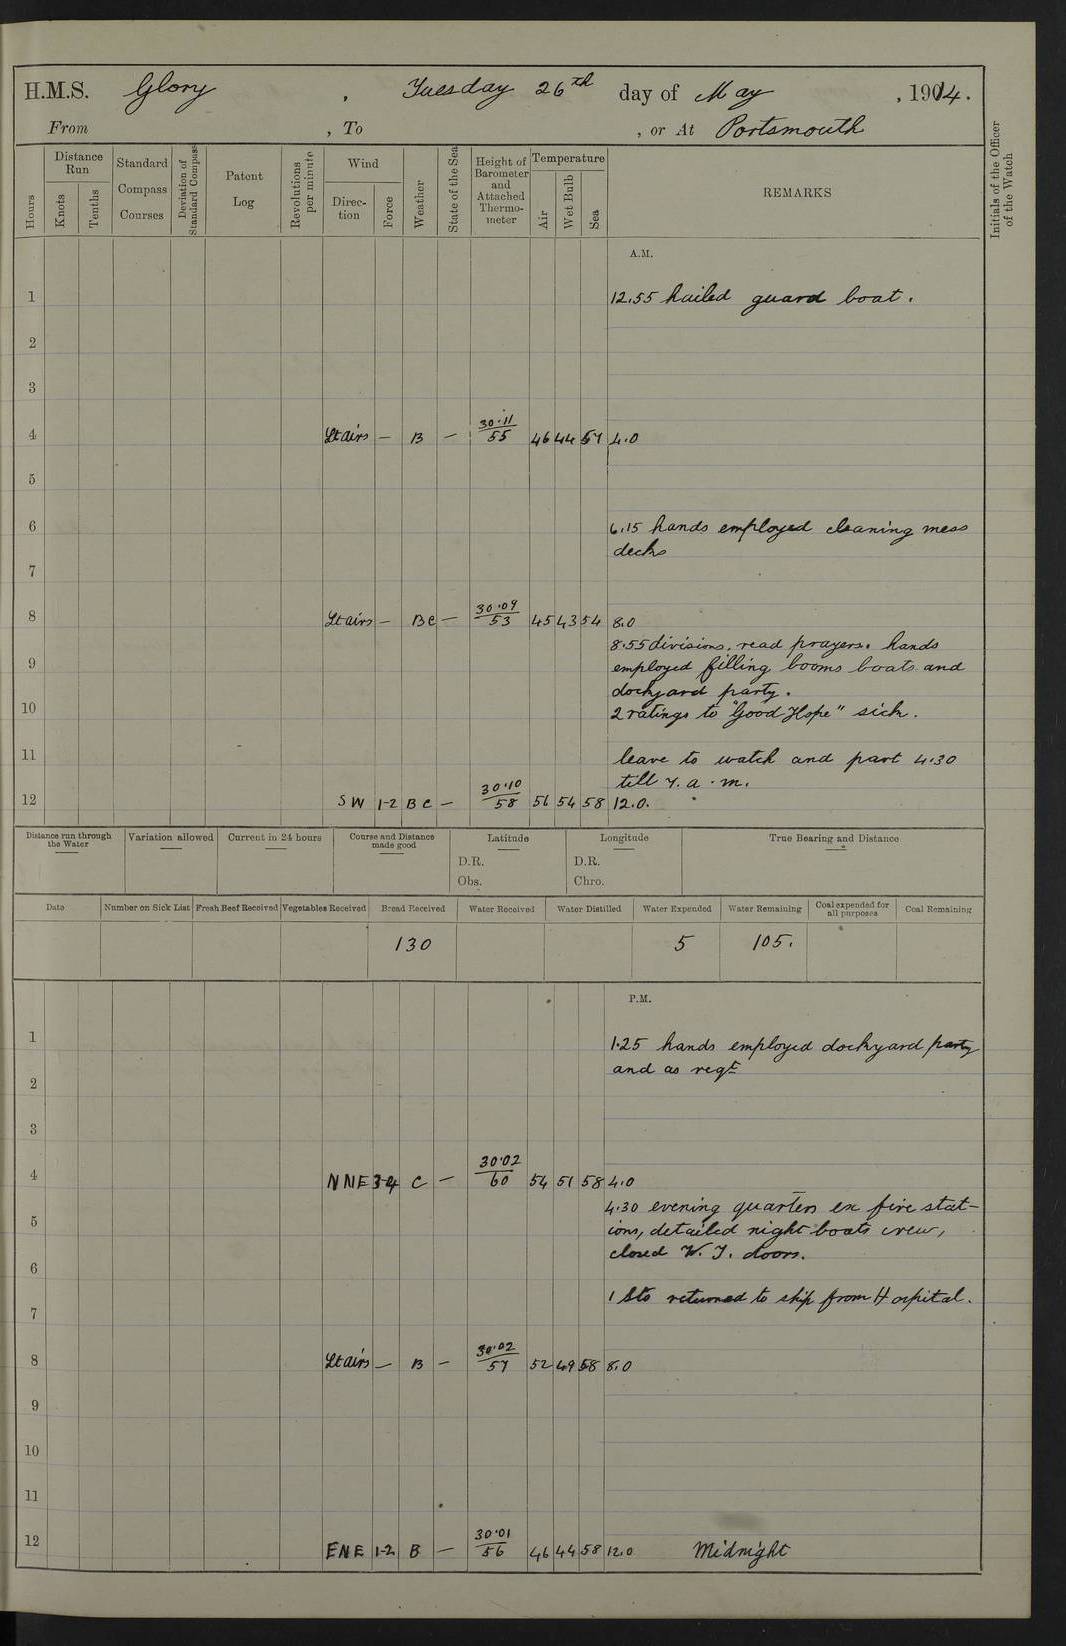 H.M.S. Glory , Tuesday 26th day of May , 1914.
From , To , or At Portsmouth
Hours
Distance Run
Knots
Tenths
Standard Compass Courses
Deviation of Standard Compass
Patent Log
Revolutions per minute
Wind
Direction
Force
Weather
State of the Sea
Height of Barometer and Attached Thermometer
Temperature
Air
Wet Bulb
Sea
REMARKS
Initials of the Officer of the Watch
A.M.
1 12.55 hailed guard boat.
2
3
4 Lt airs — B — 30.11/55 46 44 57 4.0
5
6 6.15 hands employed cleaning mess
decks
7
8 Lt airs — BC — 30.09/53 45 43 54 8.0
8.55 divisions, read prayers. hands
9 employed filling booms boats and
dockyard party.
10 2 ratings to "Good Hope" sick.
11 leave to watch and part 4.30
till 7. a.m.
12 SW 1-2 BC — 30.10/58 56 54 58 12.0.
Distance run through the Water
Variation allowed
Current in 24 hours
Course and Distance made good
Latitude
D.R.
Obs.
Longitude
D.R.
Chro.
True Bearing and Distance
Date Number on Sick List Fresh Beef Received Vegetables Received Bread Received Water Received Water Distilled Water Expended Water Remaining Coal expended for all purposes Coal Remaining
130 5 105.
P.M.
1 1.25 hands employed dockyard party
and as reqt
2
3
4 NNE 3-4 C — 30.02/60 54 51 58 4.0
4.30 evening quarters ex fire stat-
5 ions, detailed night boats crew,
closed W.T. doors.
6
1 Sto returned to ship from Hospital.
7
8 Lt airs — B — 30.02/57 52 49 58 8.0
9
10
11
12 ENE 1-2 B — 30.01/56 46 44 58 12.0 Midnight